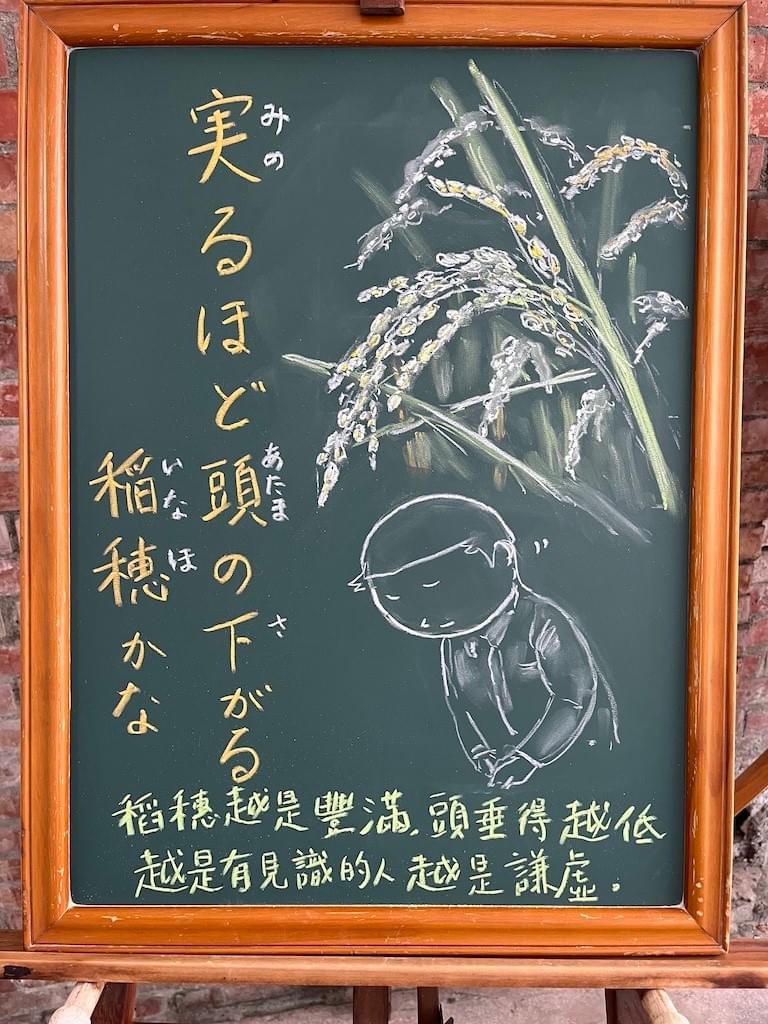 実るほど頭の下がる
みの
あたま
さ
稲穂かな
いな
ほ
稻穗越是豐滿,頭垂得越低
越是有見識的人越是謙虛.